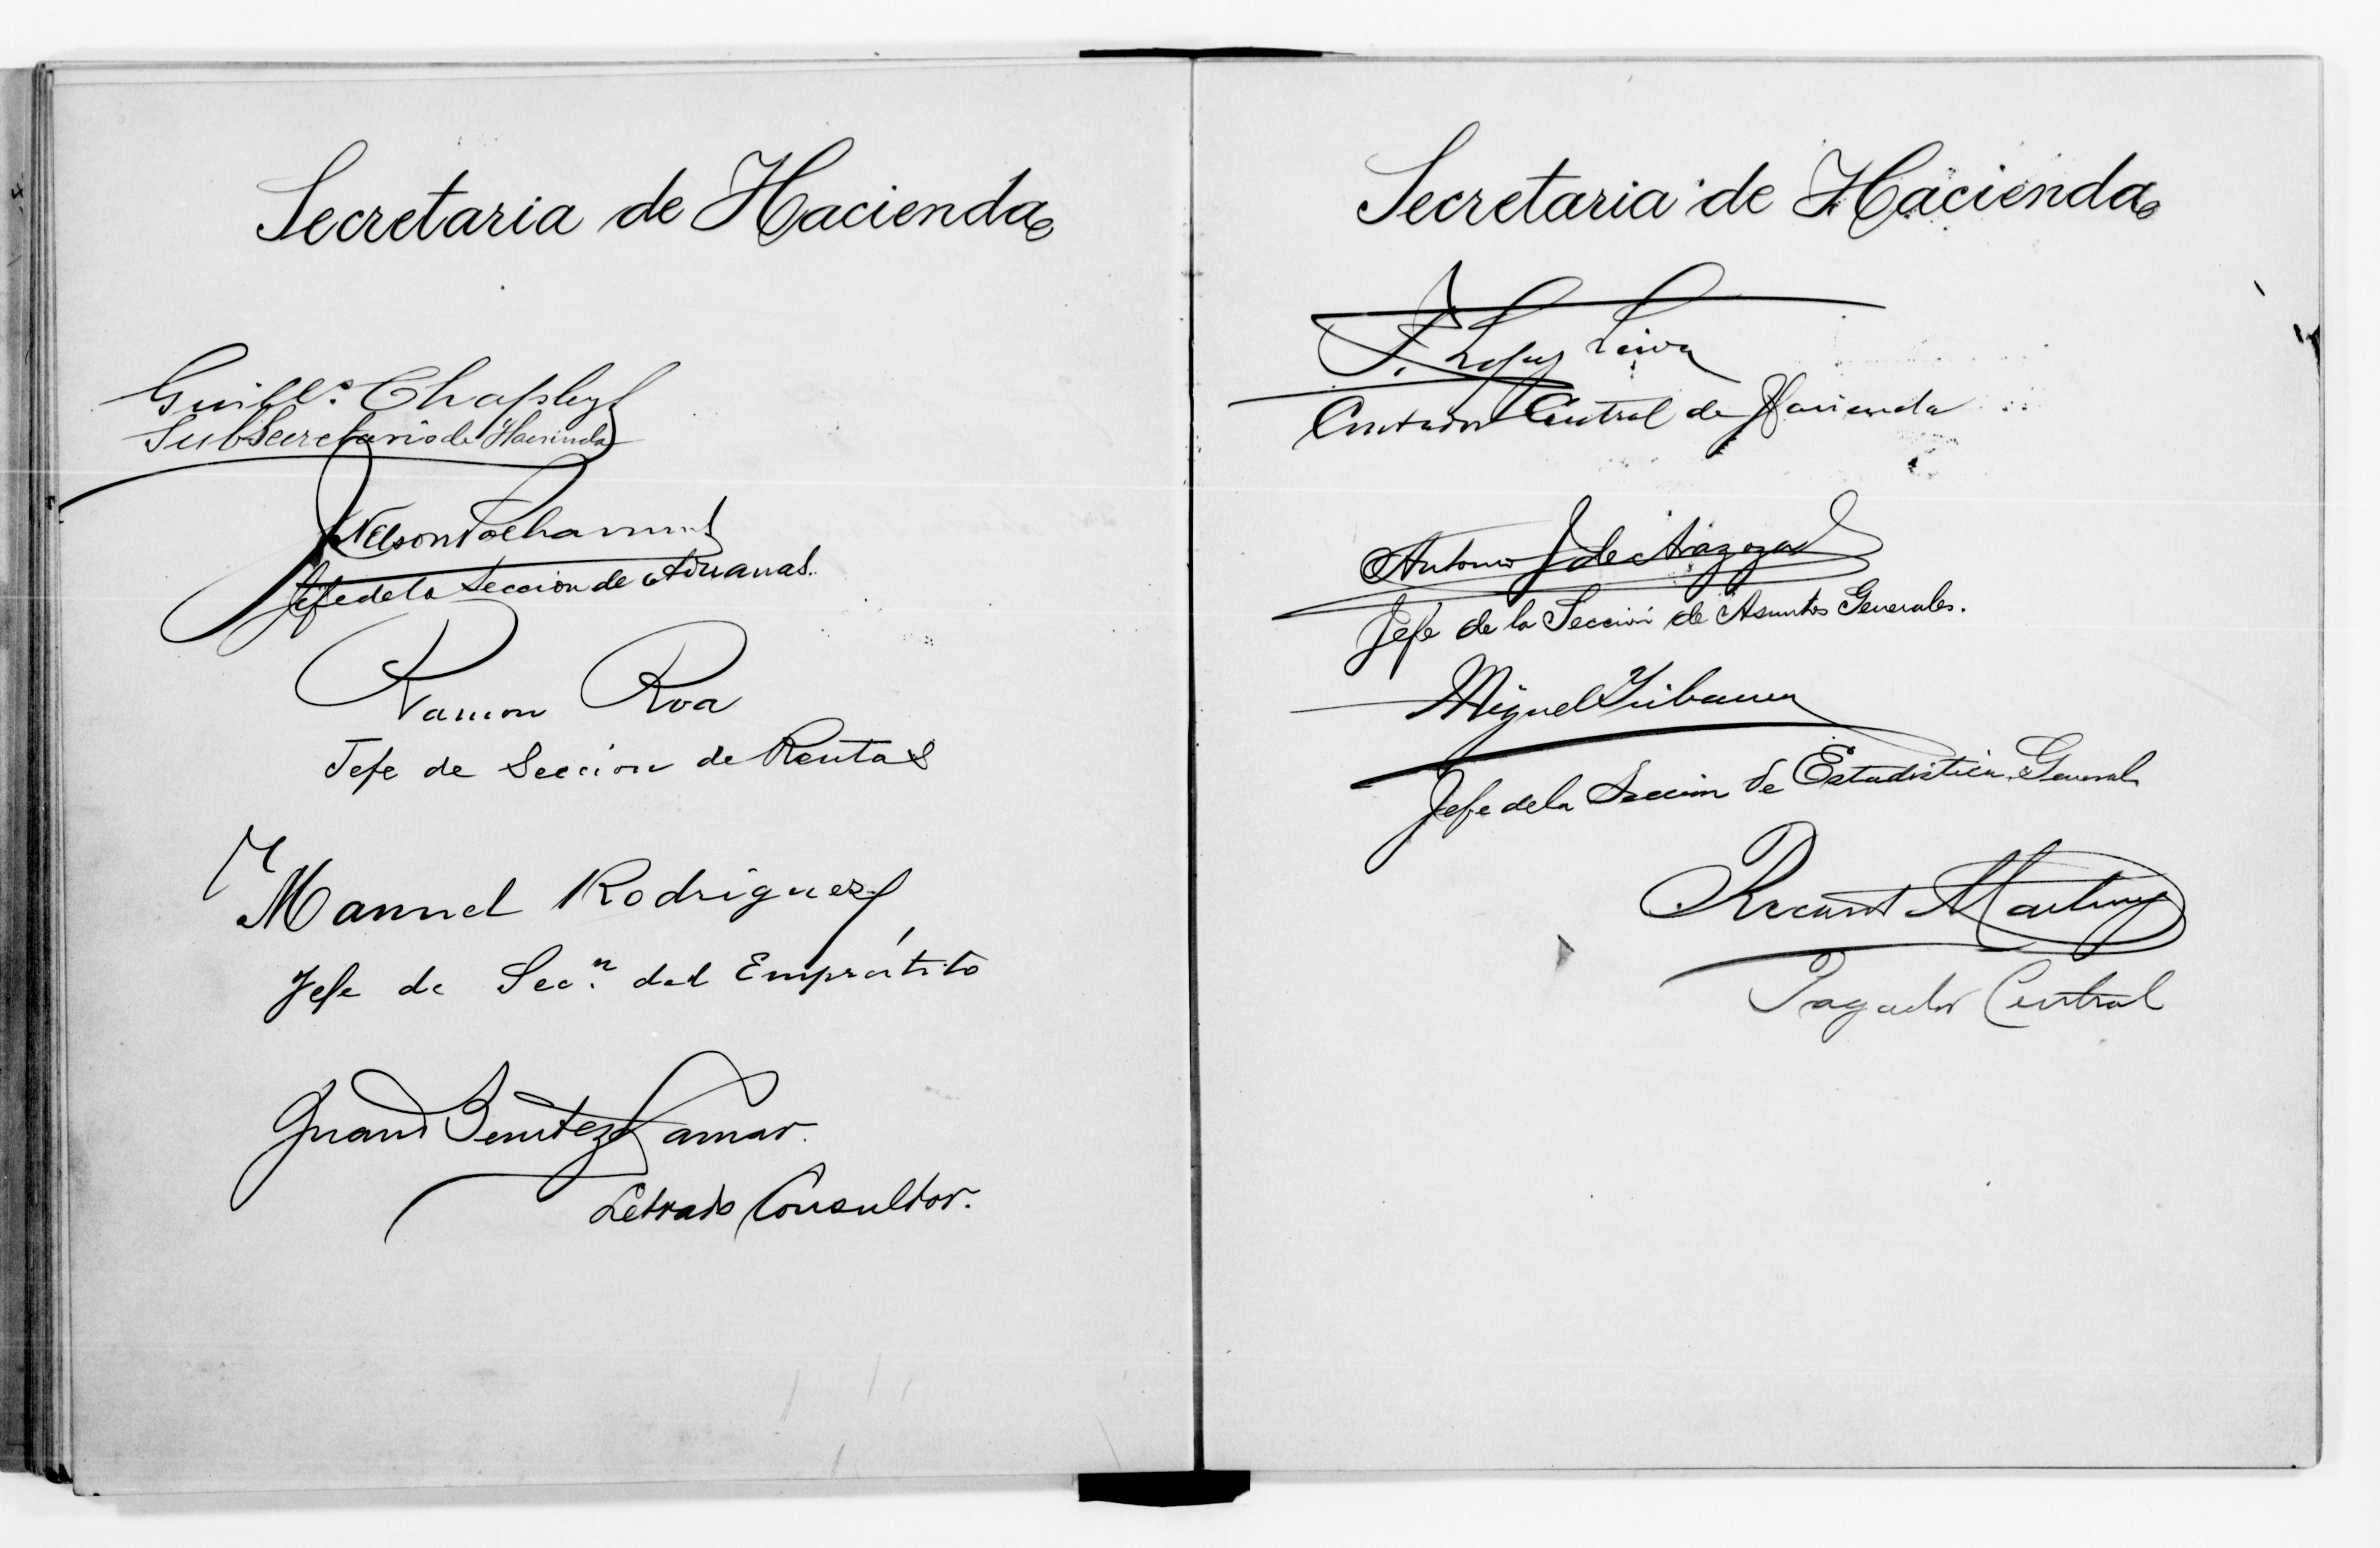 Secretaria de Hacienda
Guillo. Chaple
Subsecretario de Hacienda
Nelson Polhamus
Jefe de la Seccion de Aduanas.
Ramon Roa
Jefe de Seccion de Rentas
Manuel Rodriguez
Jefe de Secn. del Empréstito
Juan Benitez Lamar.
Letrado Consultor.
Secretaria de Hacienda
F. Lopez Leiva
Contador Central de Hacienda
Antonio J. de Arazoza
Jefe de la Sección de Asuntos Generales.
Miguel
Jefe de la Seccion de Estadistica General
Ricardo Martinez
Pagador Central